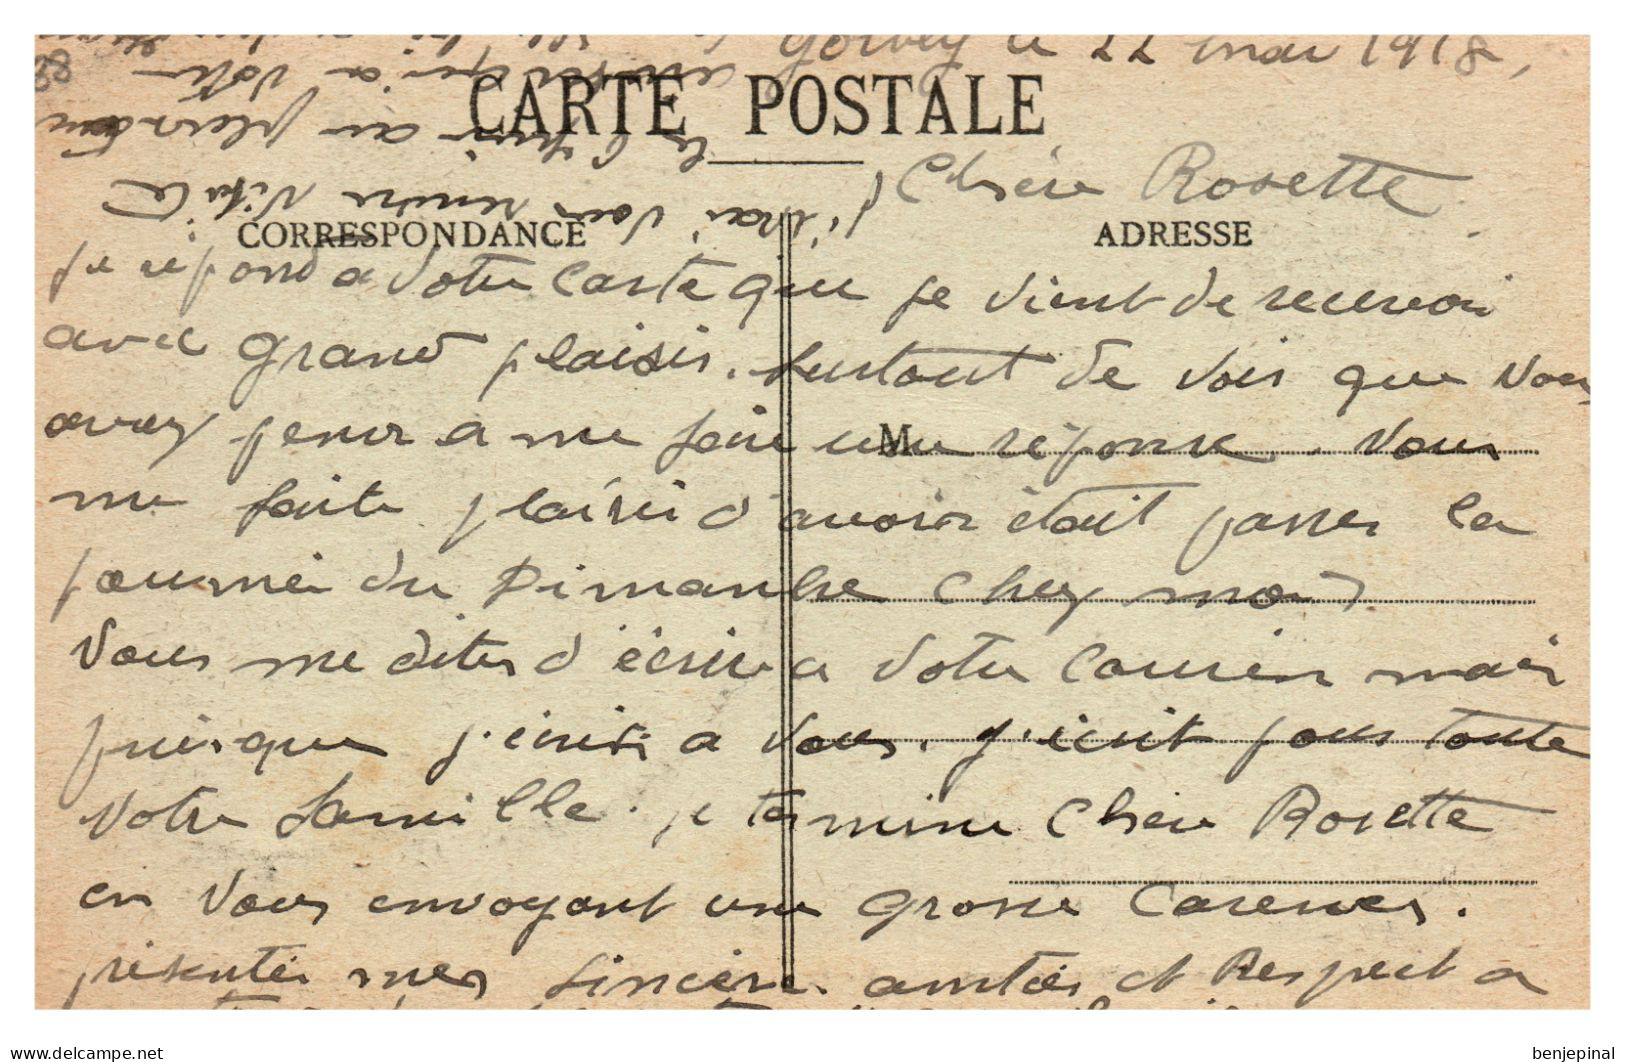 Golbey le 22 mai 1918,
CARTE POSTALE
Chère Rosette
CORRESPONDANCE
ADRESSE
je répond a votre carte que je vient de recevoir
avec grand plaisir. surtout de voir que vous
avez penser a me faire une réponse. Vous
M
me faite plaisir d'avoir était passer la
journée du Dimanche chez moi
Vous me dites d'écrire a votre cousin mais
puisque j'écrit a vous. j'écrit pour toute
votre famille. je termine chère Rosette
en vous envoyant une grosse caresses.
présenter mes sincère amitiés et Respect a
j'irai vous rendre visite
www.delcampe.net
benjepinal